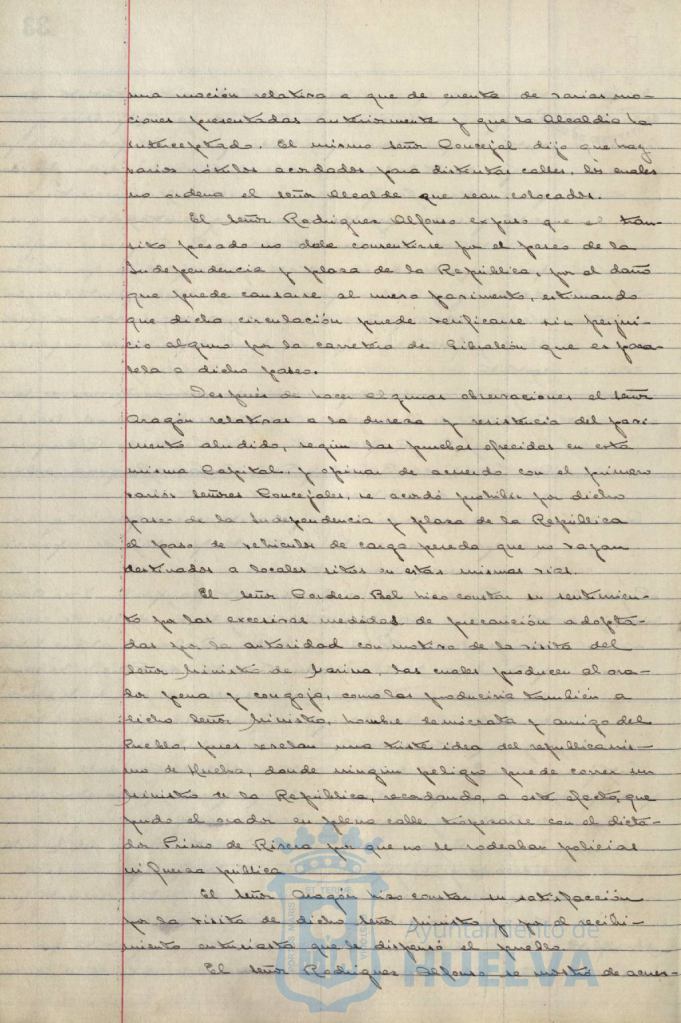 una moción relativa a que de cuenta de varias mo-
ciones presentadas anteriormente y que la Alcaldía ha
interceptado. El mismo señor Concejal dijo que hay
varios rótulos acordados para distintas calles, los cuales
no ordena el señor Alcalde que sean colocados.
El señor Rodríguez Alfonso expuso que el trán-
sito pesado no debe consentirse por el paseo de la
Independencia y plaza de la República, por el daño
que puede causarse al nuevo pavimento, estimando
que dicha circulación puede verificarse sin perjui-
cio alguno por la carretera de Gibraleón que es para-
lela a dicho paseo.
Después de hacer algunas observaciones el señor
Aragón relativas a la dureza y resistencia del pavi-
mento aludido, según las pruebas ofrecidas en esta
misma Capital, y opinar de acuerdo con el primero
varios señores Concejales, se acordó prohibir por dicho
paseo de la Independencia y plaza de la República
el paso de vehículos de carga pesada que no vayan
destinados a locales sitos en estas mismas vías.
El señor Cordero Bel hizo constar su sentimien-
to por las excesivas medidas de precaución adopta-
das por la autoridad con motivo de la visita del
señor Ministro de Marina, las cuales producen al ora-
dor pena y congoja, como las produciría también a
dicho señor Ministro, hombre demócrata y amigo del
Pueblo, pues revelan una triste idea del republicanis-
mo de Huelva, donde ningún peligro puede correr un
Ministro de la República, recordando, a este efecto, que
pudo el orador en plena calle tropezarse con el dicta-
dor Primo de Rivera por que no le rodeaban policias
ni fuerza pública
El señor Aragón hizo constar su satisfacción
por la visita de dicho señor Ministro y por el recibi-
miento entusiasta que le dispensó el pueblo.
El señor Rodríguez Alfonso se mostró de acuer-
Ayuntamiento de
HUELVA